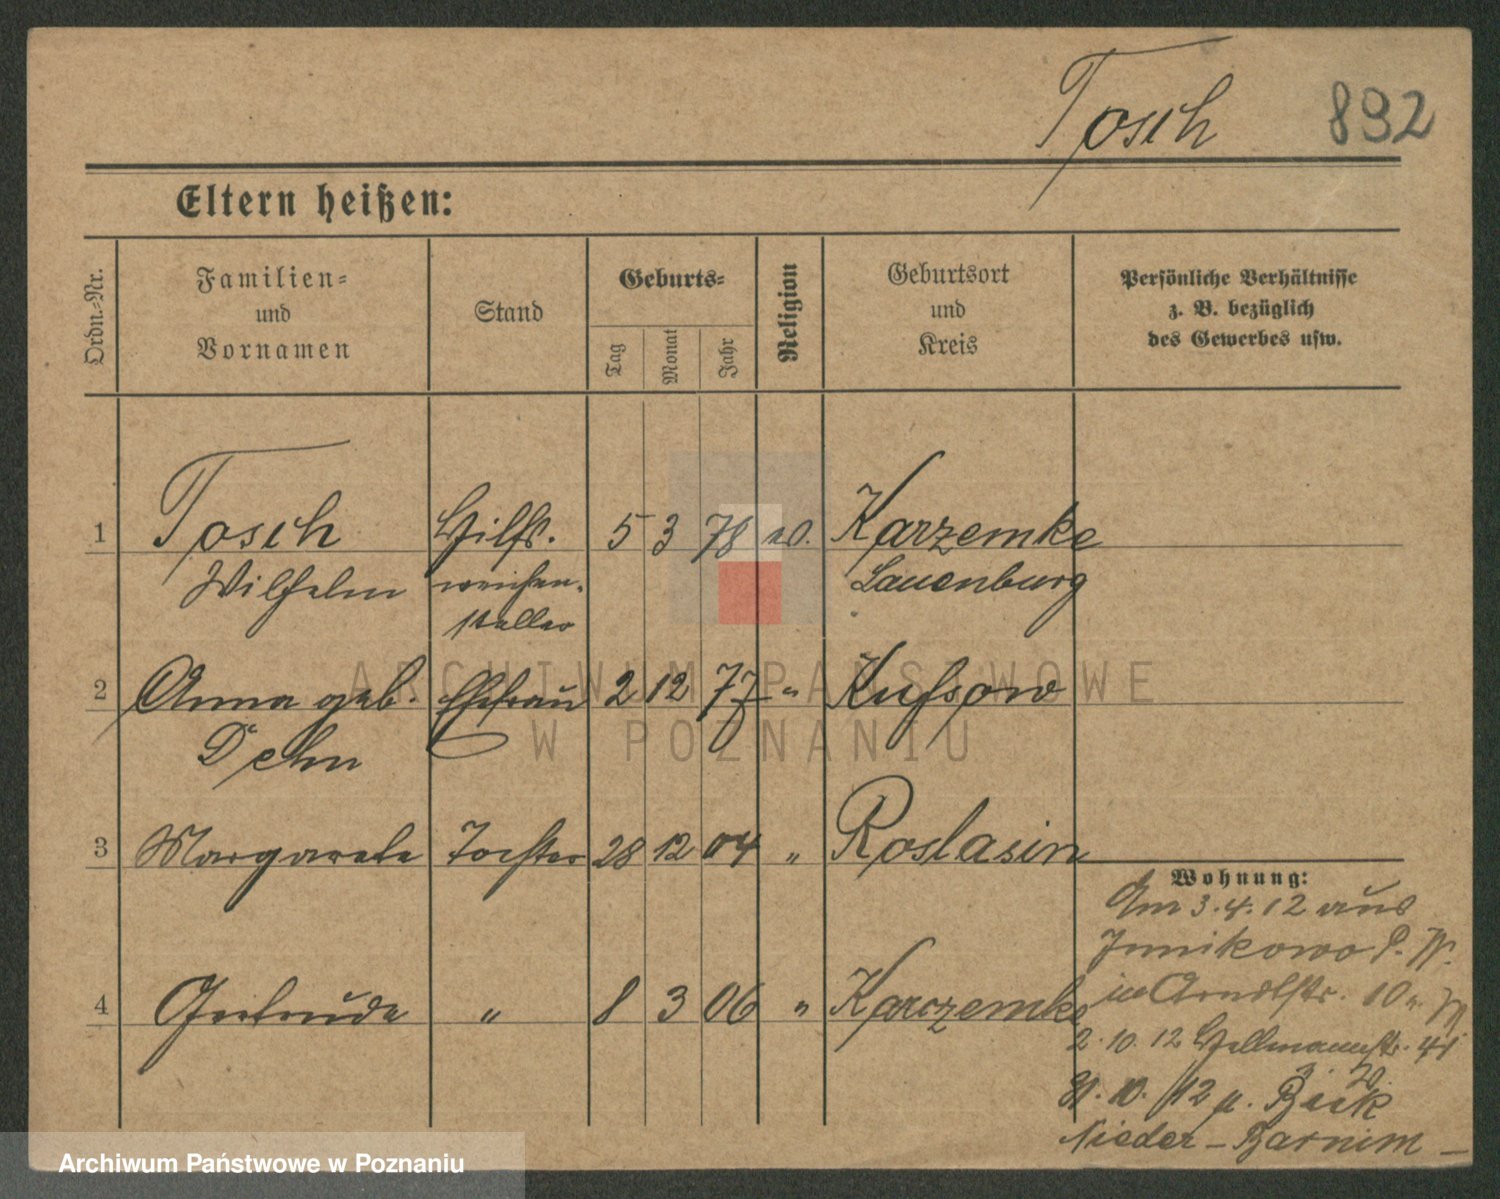 Tosch 892
Eltern heißen:
Ordn.-Nr.
Familien-
und
Vornamen
Stand
Geburts-
Tag
Monat
Jahr
Religion
Geburtsort
und
Kreis
Persönliche Verhältnisse
z. B. bezüglich
des Gewerbes usw.
1 Tosch Hilfs. 5 3 78 ev. Karzemke
Wilhelm weichen- Lauenburg
steller
2 Anna geb. Ehefrau 2 12 77 " Kufsow
Dehn
3 Margarete Tochter 28 12 04 " Roslasin
Wohnung:
Am 3.4.12 aus
Junikowo P. W.
in Arndtstr. 10
4 Gertrude " 8 3 06 " Karczemke
2.10.12 Hellmannstr. 41
31.10.12 n.
Nieder-Barnim
ARCHIWUM PAŃSTWOWE
W POZNANIU
Archiwum Państwowe w Poznaniu